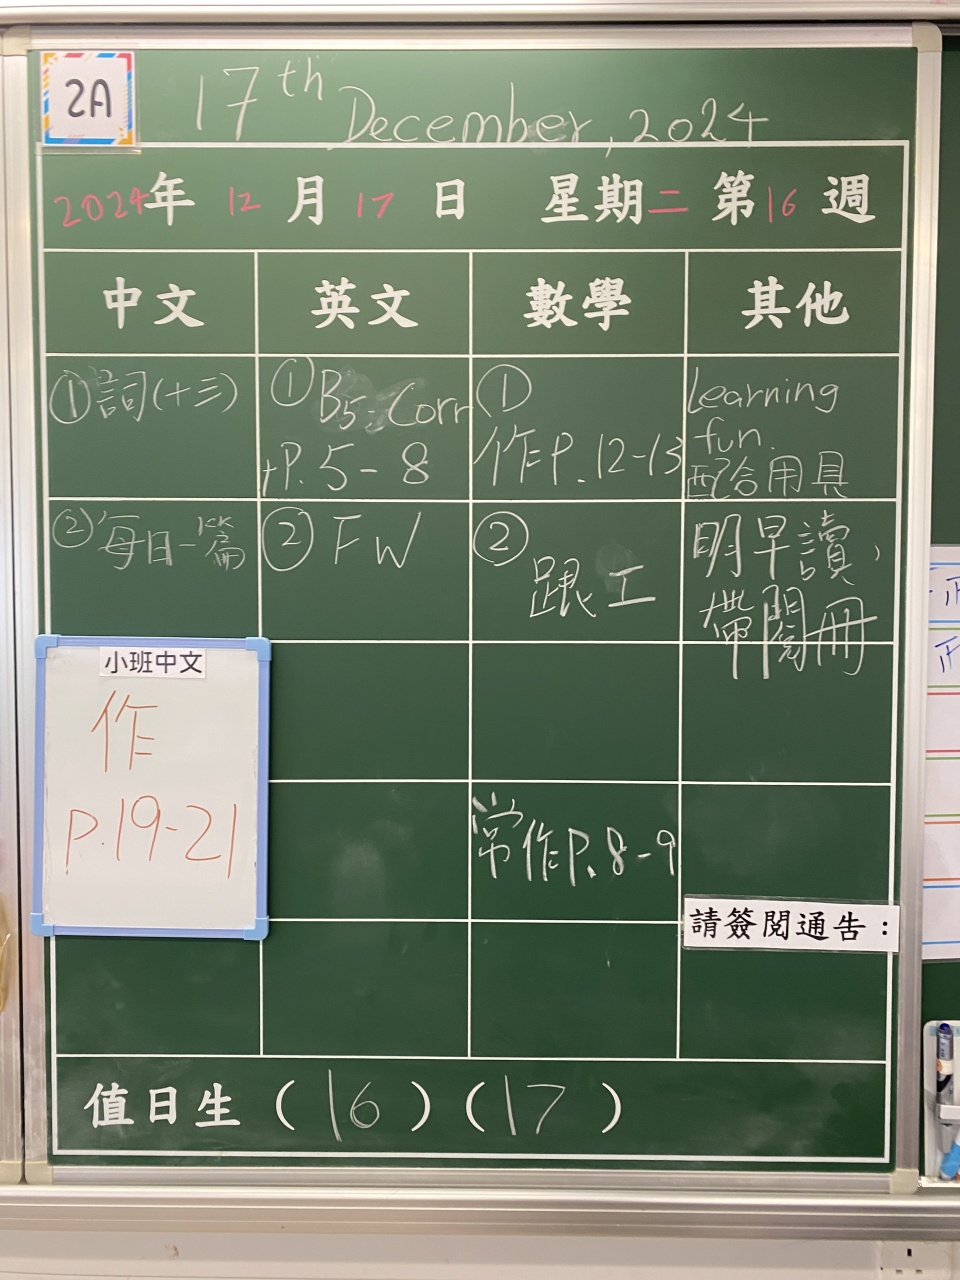 2A
17th December, 2024
2024年 12月 17日 星期二 第16週
中文 英文 數學 其他
①詞(十三)
①B5: Corr
+P.5-8
①
作P.12-13
Learning
fun.
配合用具
②每日一篇
②FW
②
跟工
明早讀,
帶閱冊
小班中文
作
P.19-21
常作P.8-9
請簽閱通告：
值日生(16)(17)
正
正